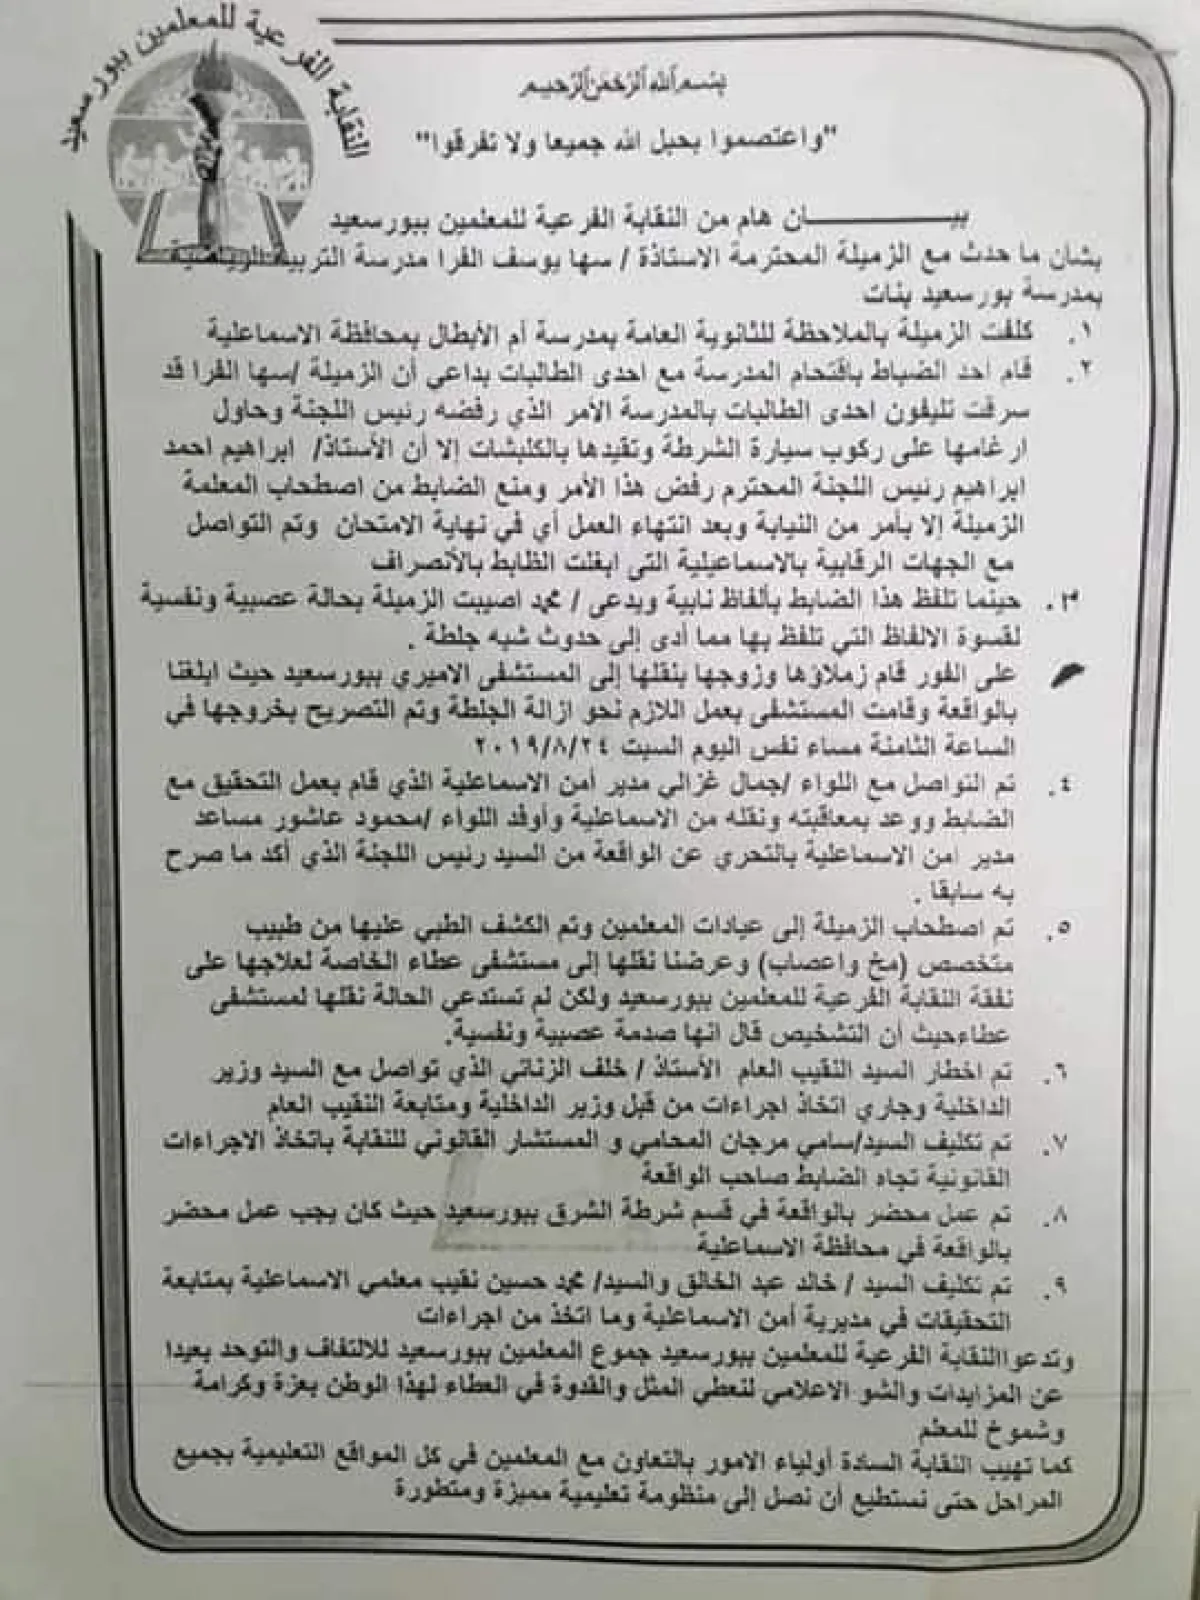 النقابة الفرعية للمعلمين ببورسعيد
بسم الله الرحمن الرحيم
"واعتصموا بحبل الله جميعا ولا تفرقوا"
بيـــــــــان هام من النقابة الفرعية للمعلمين ببورسعيد
بشان ما حدث مع الزميلة المحترمة الاستاذة / سها يوسف الفرا مدرسة التربية الرياضية
بمدرسة بورسعيد بنات
١. كلفت الزميلة بالملاحظة للثانوية العامة بمدرسة أم الأبطال بمحافظة الاسماعلية
٢. قام احد الضباط باقتحام المدرسة مع احدى الطالبات بداعي أن الزميلة /سها الفرا قد
سرقت تليفون احدى الطالبات بالمدرسة الأمر الذي رفضه رئيس اللجنة وحاول
ارغامها على ركوب سيارة الشرطة وتقيدها بالكلبشات إلا أن الأستاذ/ ابراهيم احمد
ابراهيم رئيس اللجنة المحترم رفض هذا الأمر ومنع الضابط من اصطحاب المعلمة
الزميلة إلا بأمر من النيابة وبعد انتهاء العمل أي في نهاية الامتحان وتم التواصل
مع الجهات الرقابية بالاسماعيلية التى ابغلت الظابط بالآنصراف
٣. حينما تلفظ هذا الضابط بألفاظ نابية ويدعى / محمد اصيبت الزميلة بحالة عصبية ونفسية
لقسوة الالفاظ التي تلفظ بها مما أدى إلى حدوث شبه جلطة .
على الفور قام زملاؤها وزوجها بنقلها إلى المستشفى الاميري ببورسعيد حيث ابلغنا
بالواقعة وقامت المستشفى بعمل اللازم نحو ازالة الجلطة وتم التصريح بخروجها في
الساعة الثامنة مساء نفس اليوم السبت ٢٠١٩/٨/٢٤
٤. تم التواصل مع اللواء /جمال غزالي مدير أمن الاسماعلية الذي قام بعمل التحقيق مع
الضابط ووعد بمعاقبته ونقله من الاسماعلية وأوفد اللواء /محمود عاشور مساعد
مدير امن الاسماعلية بالتحري عن الواقعة من السيد رئيس اللجنة الذي أكد ما صرح
به سابقا .
٥. تم اصطحاب الزميلة إلى عيادات المعلمين وتم الكشف الطبي عليها من طبيب
متخصص (مخ واعصاب) وعرضنا نقلها إلى مستشفى عطاء الخاصة لعلاجها على
نفقة النقابة الفرعية للمعلمين ببورسعيد ولكن لم تستدعي الحالة نقلها لمستشفى
عطاءحيث أن التشخيص قال انها صدمة عصبية ونفسية.
٦. تم اخطار السيد النقيب العام الأستاذ / خلف الزناتي الذي تواصل مع السيد وزير
الداخلية وجاري اتخاذ اجراءات من قبل وزير الداخلية ومتابعة النقيب العام
٧. تم تكليف السيد/سامي مرجان المحامي و المستشار القانوني للنقابة باتخاذ الاجراءات
القانونية تجاه الضابط صاحب الواقعة
٨. تم عمل محضر بالواقعة في قسم شرطة الشرق ببورسعيد حيث كان يجب عمل محضر
بالواقعة في محافظة الاسماعلية
٩. تم تكليف السيد / خالد عبد الخالق والسيد/ محمد حسين نقيب معلمي الاسماعلية بمتابعة
التحقيقات في مديرية أمن الاسماعلية وما اتخذ من اجراءات
وتدعواالنقابة الفرعية للمعلمين ببورسعيد جموع المعلمين ببورسعيد للالتفاف والتوحد بعيدا
عن المزايدات والشو الاعلامي لنعطي المثل والقدوة في العطاء لهذا الوطن بعزة وكرامة
وشموخ للمعلم
كما تهيب النقابة السادة أولياء الامور بالتعاون مع المعلمين في كل المواقع التعليمية بجميع
المراحل حتى نستطيع أن نصل إلى منظومة تعليمية مميزة ومتطورة